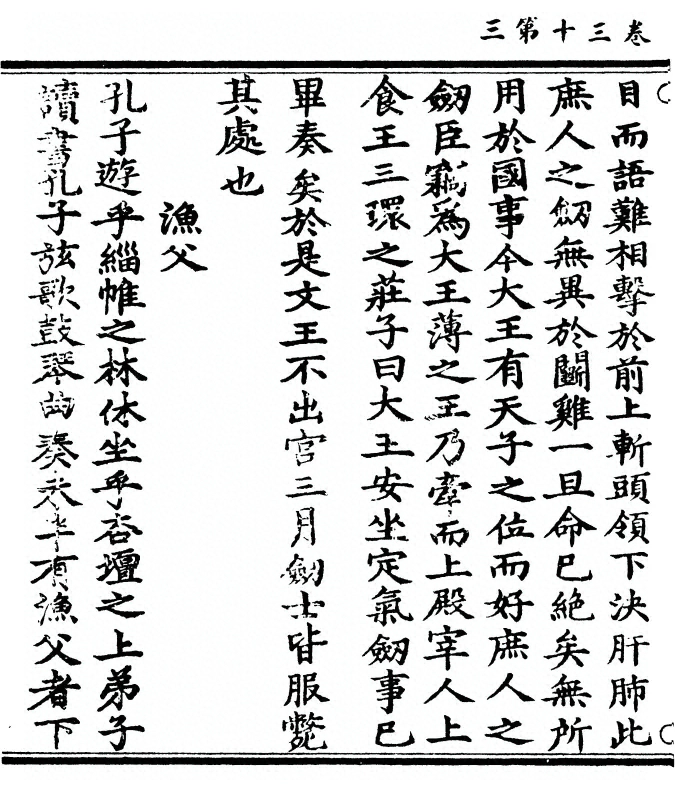 卷三十第三
目而語難相擊於前上斬頭領下決肝肺此
庶人之劒無異於鬭雞一旦命已絕矣無所
用於國事今大王有天子之位而好庶人之
劒臣竊爲大王薄之王乃牽而上殿宰人上
食王三環之莊子曰大王安坐定氣劒事已
畢奏矣於是文王不出宮三月劒士皆服斃
其處也
漁父
孔子遊乎緇帷之林休坐乎杏壇之上弟子
讀書孔子弦歌鼓琴曲奏未半有漁父者下